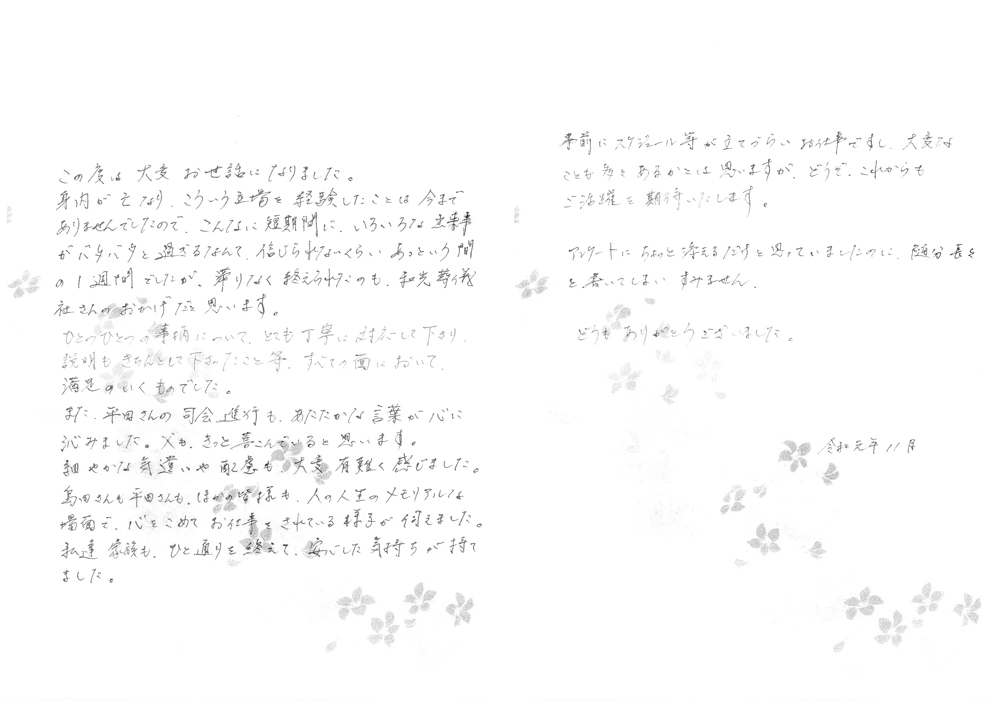 この度は 大変 お世話になりました。
身内が亡くなり、こういう立場を経験したことは今まで
ありませんでしたので、こんなに短期間に、いろいろな出来事
がバタバタと過ぎるなんて、信じられないくらい あっという間
の1週間でしたが、滞りなく終えられたのも、和光葬儀
社さんのおかげだと思います。
ひとつひとつの事柄について、とても丁寧に対応して下さり、
説明もきちんとして下さったこと等、すべての面において、
満足のいくものでした。
また、平田さんの司会進行も、あたたかな言葉が心に
沁みました。父も、きっと喜こんでいると思います。
細やかな気遣いや配慮も、大変有難く感じました。
島田さんも平田さんも、ほかの皆様も、人の人生のメモリアルな
場面で、心をこめてお仕事をされている様子が伺えました。
私達家族も、ひと通りを終えて、安心した気持ちが持て
ました。
事前にスケジュール等が立てづらいお仕事ですし、大変な
ことも多々あるかとは思いますが、どうぞ、これからも
ご活躍を期待いたします。
アンケートにちょっと添えるだけと思っていましたのに、随分長々
と書いてしまいすみません。
どうもありがとうございました。
令和元年11月